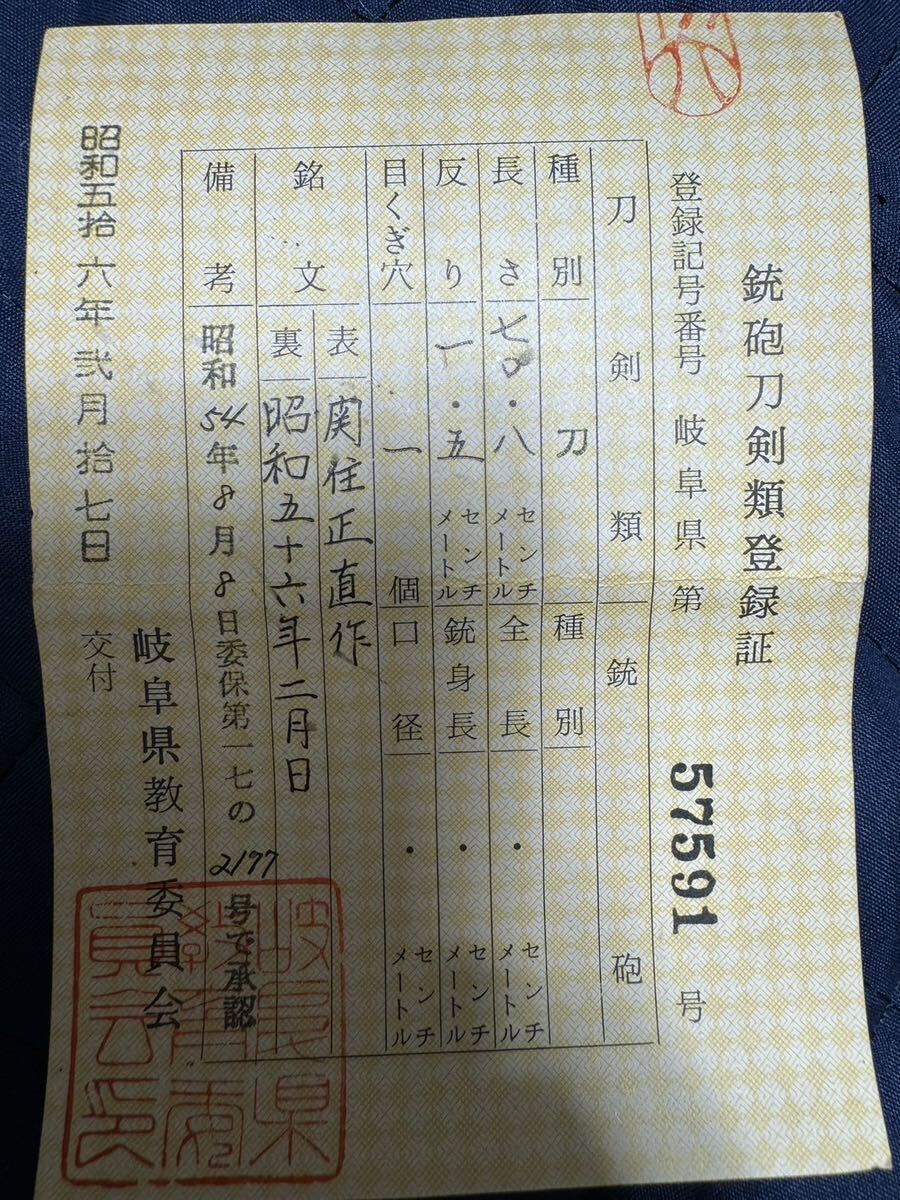 銃砲刀剣類登録証
登録記号番号 岐阜県 第 57591 号
刀剣類 銃砲
種別 刀 種別
長さ 七〇・八 センチメートル 全長 ・ センチメートル
反り 一・五 センチメートル 銃身長 ・ センチメートル
目くぎ穴 一 個 口径 ・ センチメートル
銘文 表 関住正直作
裏 昭和五十六年二月日
備考 昭和54年8月8日委保第一七の2177号で承認
岐阜県教育委員会
昭和五拾六年弐月拾七日 交付
岐阜県教育委員会印